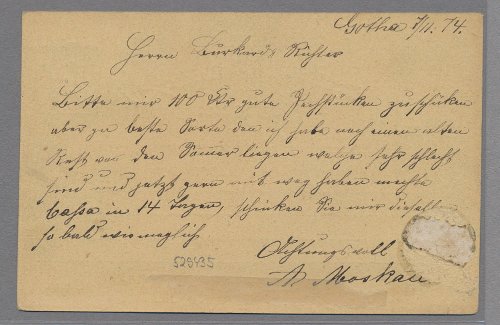 Gotha 7/11. 74.
Herrn Burkardt Richter
Bitte mir 100 St gute zu schicken
aber ja beste Sorte den ich habe noch einen alten
Rest von den Sommer liegen welche sehr schlecht
sind und jetzt gern mit weg haben mechte
Cassa in 14 Tagen, schicken Sie mir dieselben
so bald wie meglich
Achtungsvoll
A Moskau
529935